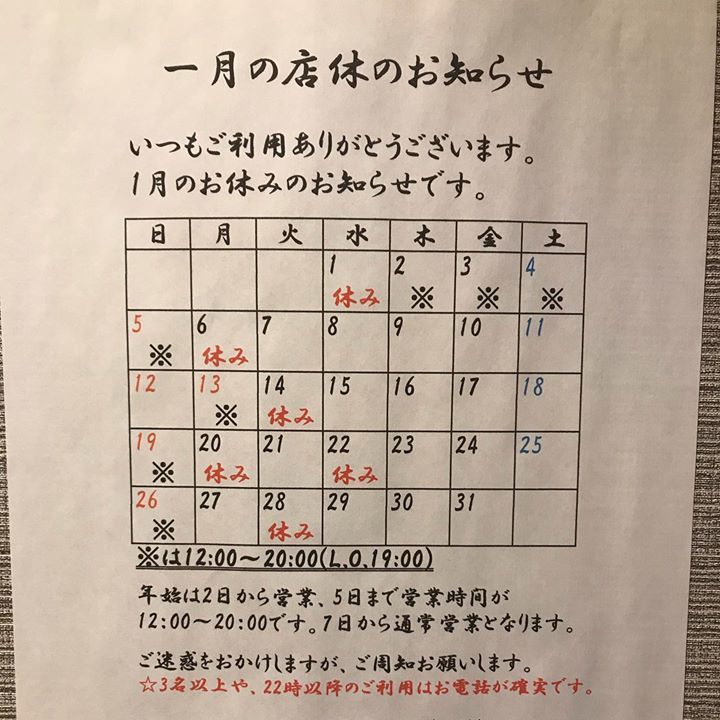 一月の店休のお知らせ
いつもご利用ありがとうございます。
1月のお休みのお知らせです。
日 月 火 水 木 金 土
1 2 3 4
休み ※ ※ ※
5 6 7 8 9 10 11
※ 休み
12 13 14 15 16 17 18
※ 休み
19 20 21 22 23 24 25
※ 休み 休み
26 27 28 29 30 31
※ 休み
※は12:00～20:00(L,O,19:00)
年始は2日から営業、5日まで営業時間が
12:00～20:00です。7日から通常営業となります。
ご迷惑をおかけしますが、ご周知お願いします。
☆3名以上や、22時以降のご利用はお電話が確実です。